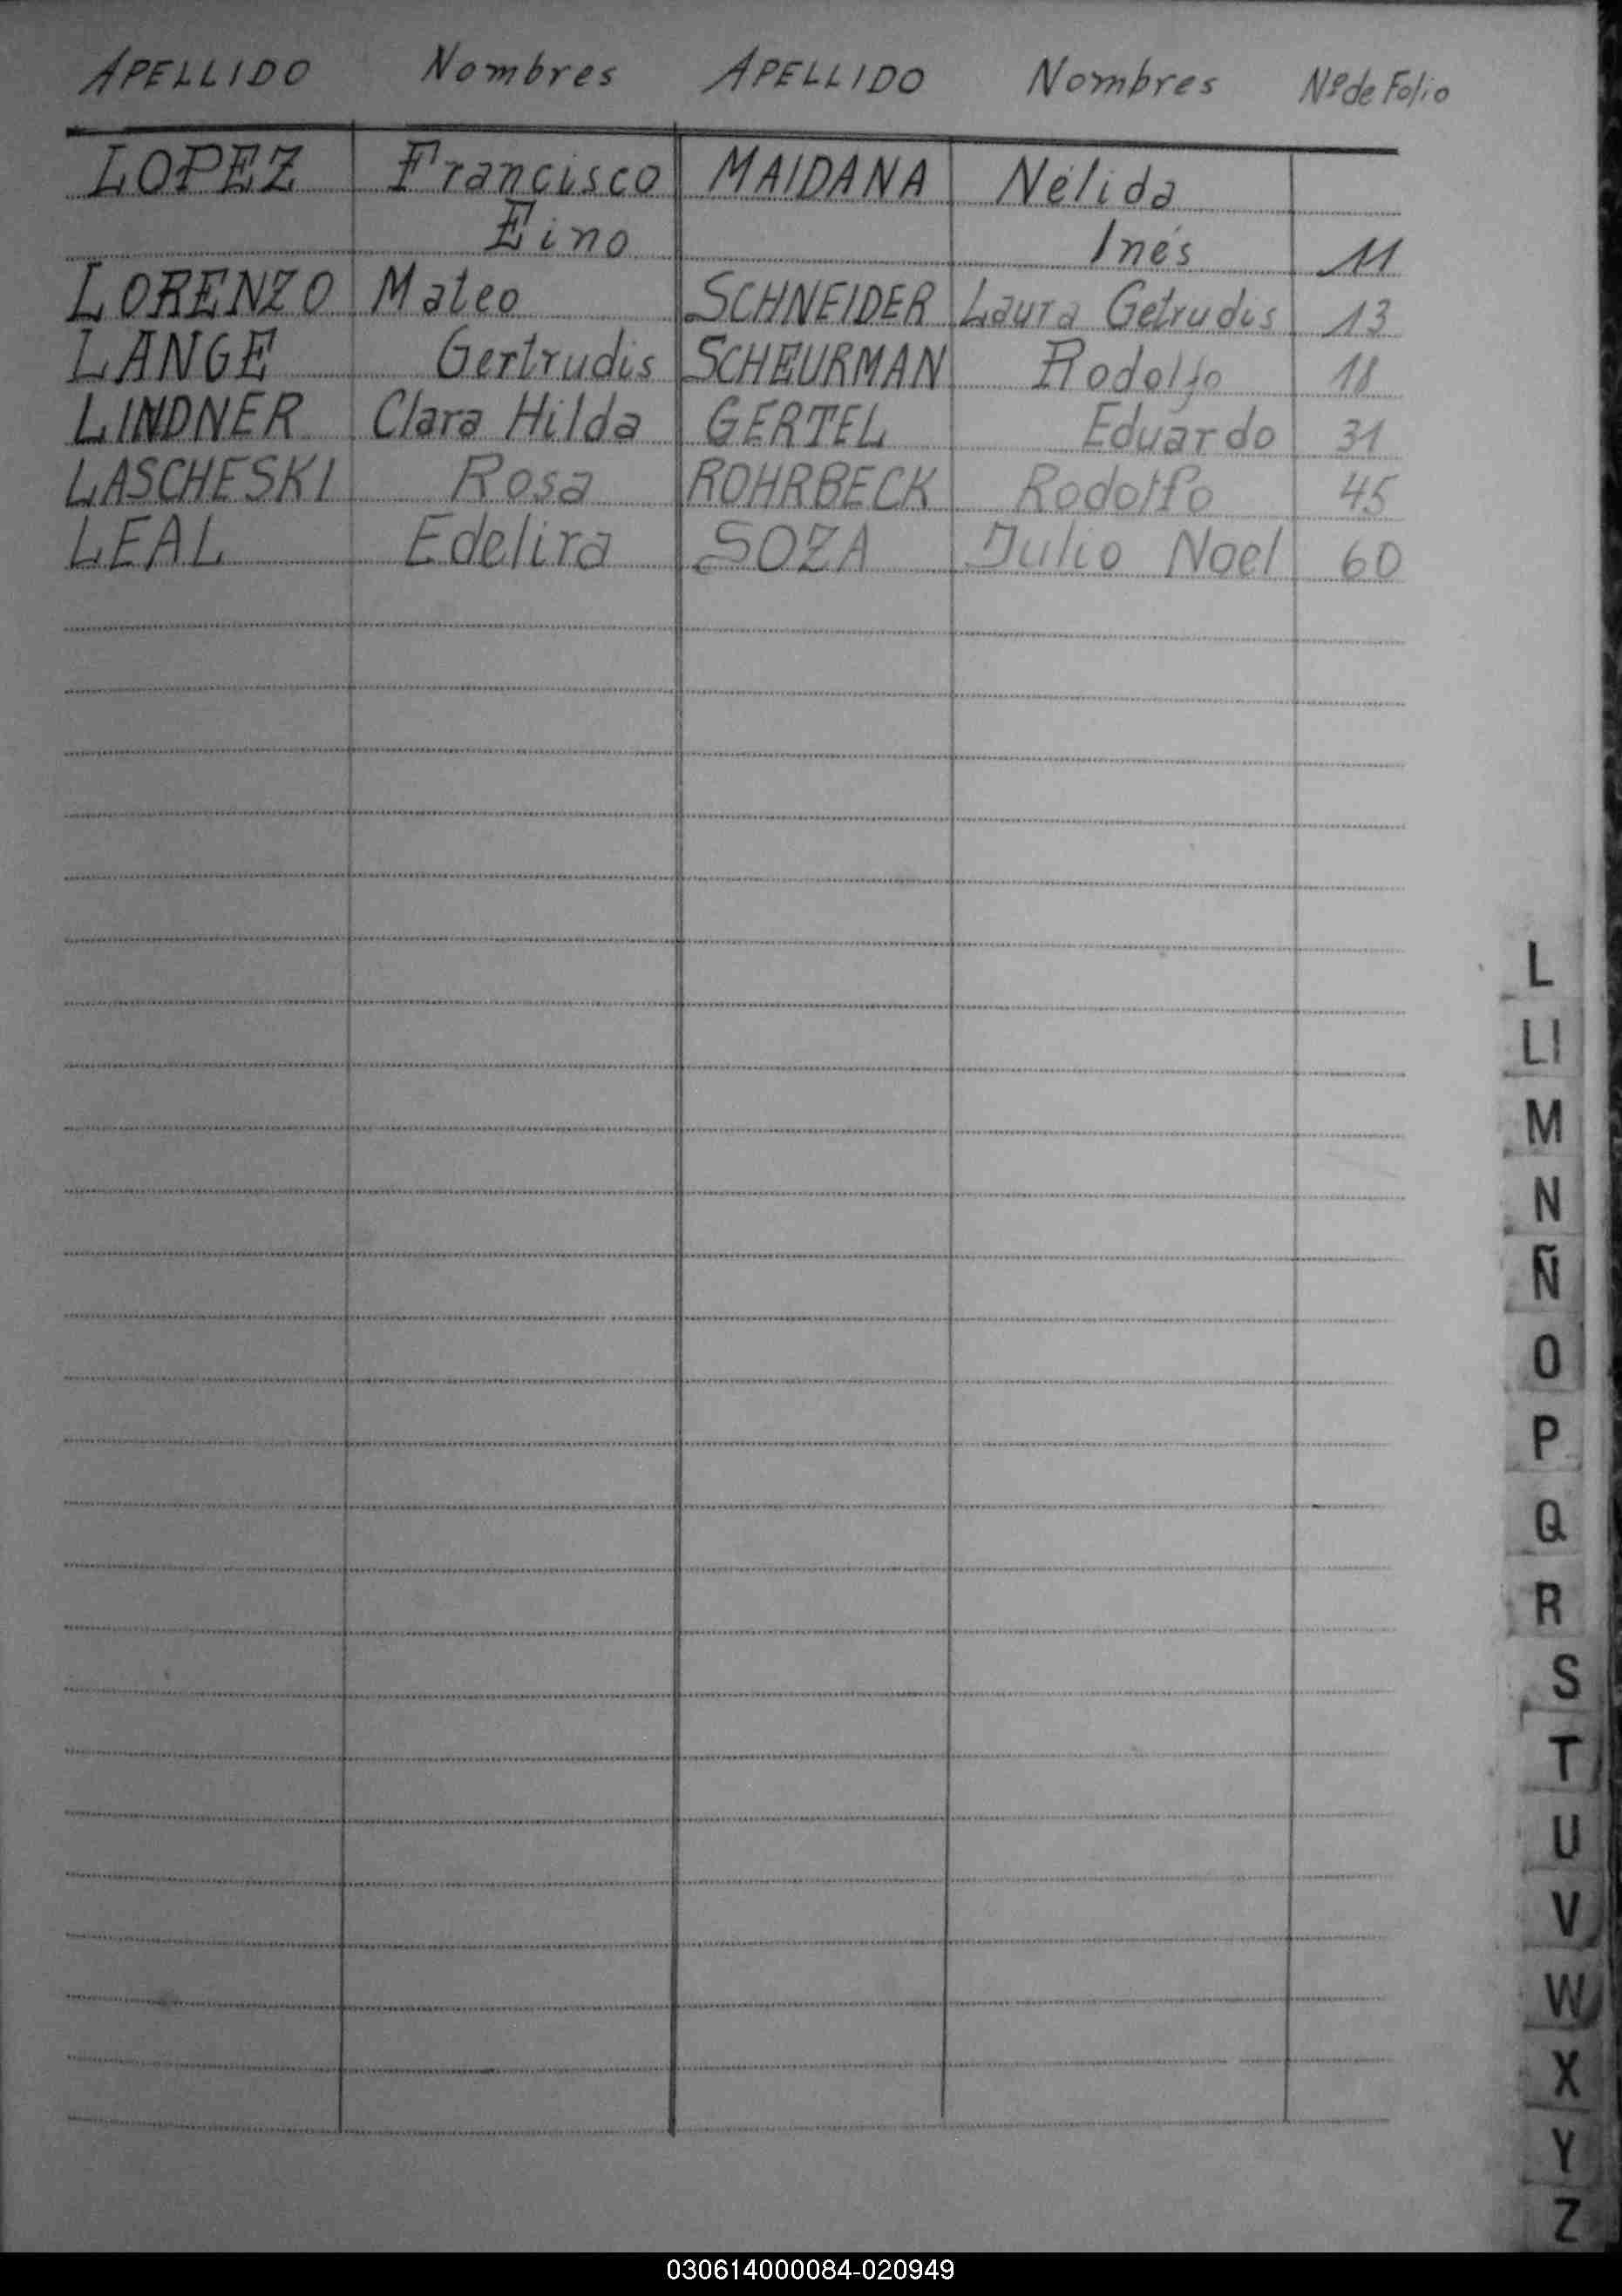 APELLIDO Nombres APELLIDO Nombres Nº de Folio
LOPEZ Francisco MAIDANA Nélida
Eino Inés 11
LORENZO Mateo SCHNEIDER Laura Getrudis 13
LANGE Gertrudis SCHEURMAN Rodolfo 18
LINDNER Clara Hilda GERTEL Eduardo 31
LASCHESKI Rosa ROHRBECK Rodolfo 45
LEAL Edelira SOZA Julio Noel 60
L
Ll
M
N
Ñ
O
P
Q
R
S
T
U
V
W
X
Y
Z
030614000084-020949